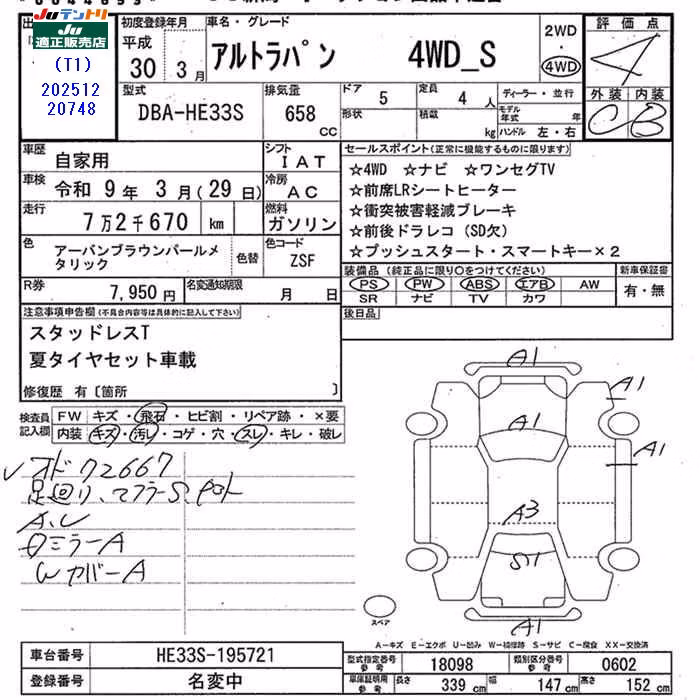 Juテントリ
JU
適正販売店
(T1)
202512
20748
初度登録年月
平成
30 3月
車名・グレード
アルトラパン 4WD_S
2WD
・
4WD
評価点
4
型式
DBA-HE33S
排気量
658 cc
ドア
5
定員
4 人
形状
積載
kg
ディーラー・並行
モデル年式 年
ハンドル 左・右
外装 内装
C B
車歴
自家用
シフト
IAT
車検
令和 9年 3月(29日)
冷房
AC
走行
7万2千670 km
燃料
ガソリン
色
アーバンブラウンパールメタリック
色替
色コード
ZSF
R券
7,950円
名変通知期限
月 日
セールスポイント(正常に機能するものに限ります)
☆4WD ☆ナビ ☆ワンセグTV
☆前席LRシートヒーター
☆衝突被害軽減ブレーキ
☆前後ドラレコ(SD欠)
☆プッシュスタート・スマートキー×2
装備品(純正品に限り○をつけてください)
PS PW ABS エアB AW
SR ナビ TV カワ
新車保証書
有・無
後日品
注意事項申告欄(不具合内容等は具体的に記入して下さい)
スタッドレスT
夏タイヤセット車載
修復歴 有〔箇所 〕
検査員記入欄
FW キズ・飛石・ヒビ割・リペア跡・×要
内装 キズ・汚レ・コゲ・穴・スレ・キレ・破レ
オド72667
足回り、マフラーS
A、U
ミラーA
WカバーA
A1
A1
A1
A1
A3
S1
A1
スペア
A-キズ E-エクボ U-凹み W-補修跡 S-サビ C-腐食 XX-交換済
車台番号
HE33S-195721
登録番号
名変中
型式指定番号
参考
18098
類別区分番号
参考
0602
車庫証明用
参考
長さ 339 cm 幅 147 cm 高さ 152 cm